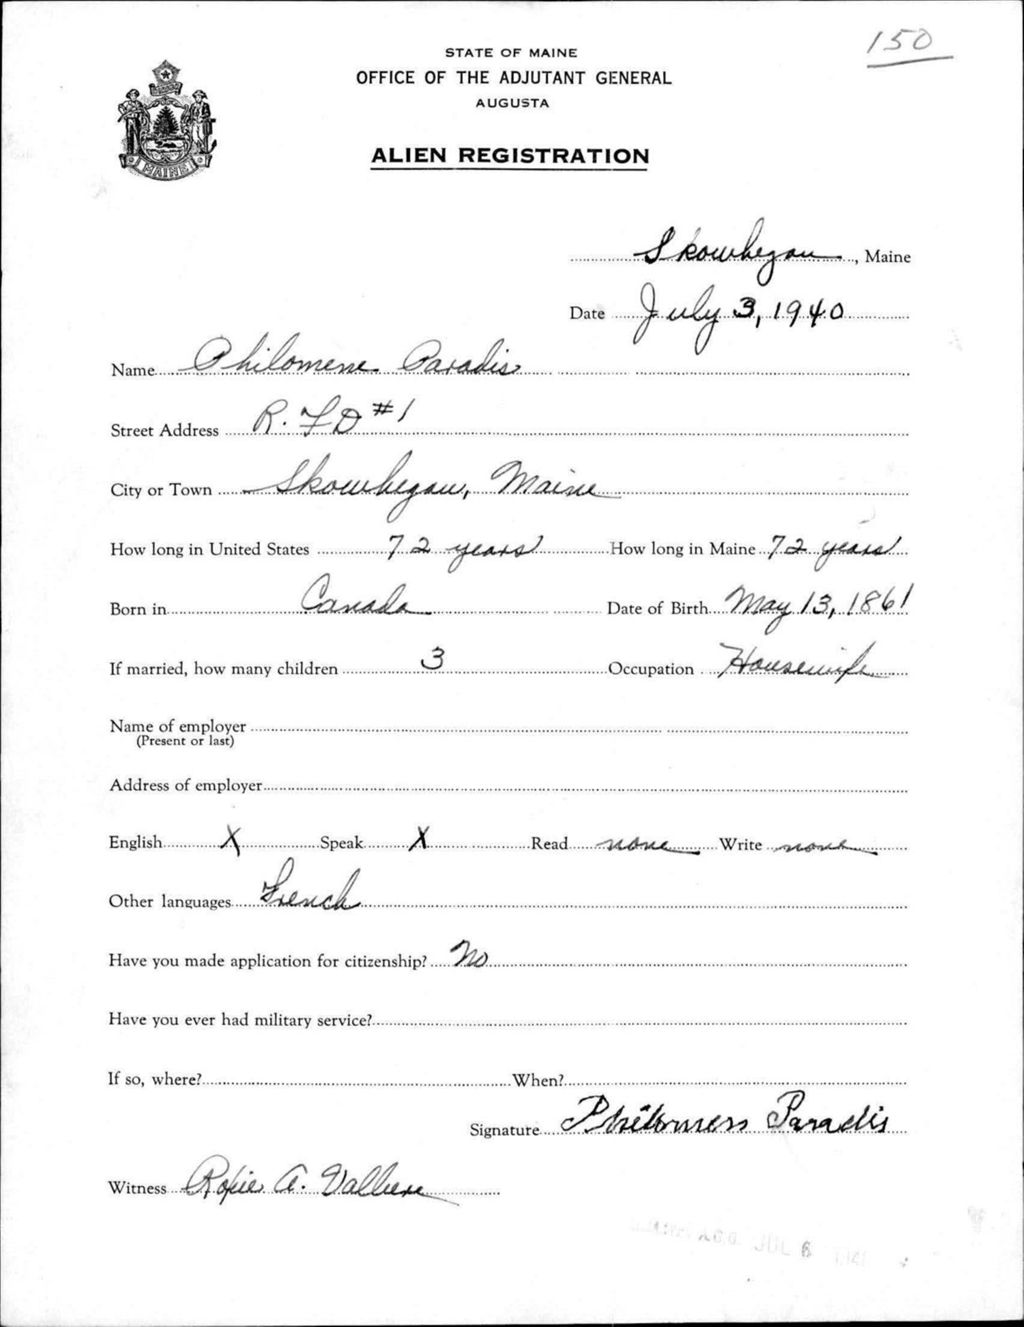 150
STATE OF MAINE
OFFICE OF THE ADJUTANT GENERAL
AUGUSTA
MAINE
ALIEN REGISTRATION
Skowhegan, Maine
Date July 3, 1940
Name Philomene Paradis
Street Address R. F D #1
City or Town Skowhegan, Maine
How long in United States 72 years How long in Maine 72 years
Born in Canada Date of Birth May 13, 1861
If married, how many children 3 Occupation Housewife
Name of employer
(Present or last)
Address of employer
English X Speak X Read none Write none
Other languages French
Have you made application for citizenship? No
Have you ever had military service?
If so, where? When?
Signature Philomen Paradis
Witness A. Valliere
JUL 6